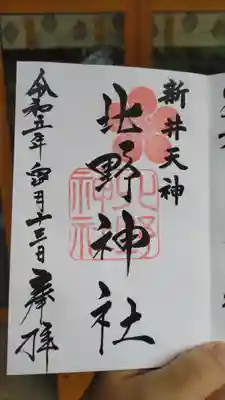 新井天神
北野神社
北野神社
令和五年四月十三日
奉拝